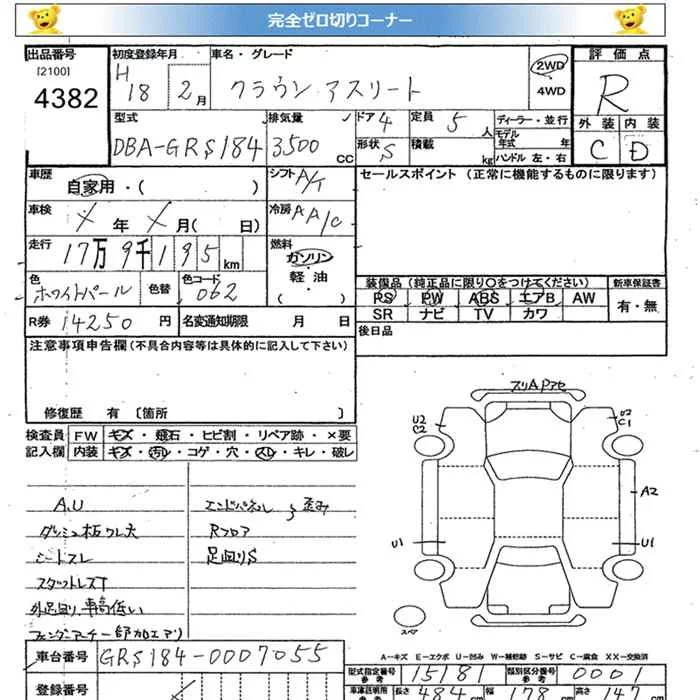 完全ゼロ切りコーナー
出品番号 初度登録年月 車名・グレード 評価点
[2100] 4382 H 18 2月 クラウン アスリート 2WD 4WD R
型式 排気量 ドア 4 定員 5 人 ディーラー・並行 外装 内装
DBA-GRS184 3500 CC 形状 S 積載 kg モデル年式 年 ハンドル 左・右 C D
車歴 自家用・( ) シフト A/T セールスポイント (正常に機能するものに限ります)
車検 年 月( 日) 冷房 AA/C
走行 17万9千195km 燃料 ガソリン・軽油・( )
色 ホワイトパール 色替 色コード 062
装備品 (純正品に限り〇をつけてください) 新車保証書
PS PW ABS エアB AW 有・無
SR ナビ TV カワ
R券 14250円 名変通知期限 月 日 後日品
注意事項申告欄(不具合内容等は具体的に記入して下さい)
修復歴 有 〔箇所 〕
検査員 FW キズ・飛石・ヒビ割・リペア跡・×要
記入欄 内装 キズ・汚レ・コゲ・穴・スレ・キレ・破レ
A.U エンドパネル 歪み
ダッシュ板ワレ大 Rフロア
シートスレ 足回りS
スタットレスT
外足回り、車高低い
フェンダーアーチ一部加工ア)
スリAPアセ
U2 C2 U2 C1
A2
U1 U1
スペア
A-キズ E-エクボ U-凹み W-補修跡 S-サビ C-腐食 XX-交換済
車台番号 GRS184-0007055
型式指定番号参考 15181 類別区分番号参考 0001
登録番号 車検証明用参考 長さ 484cm 幅 178cm 高さ 147cm